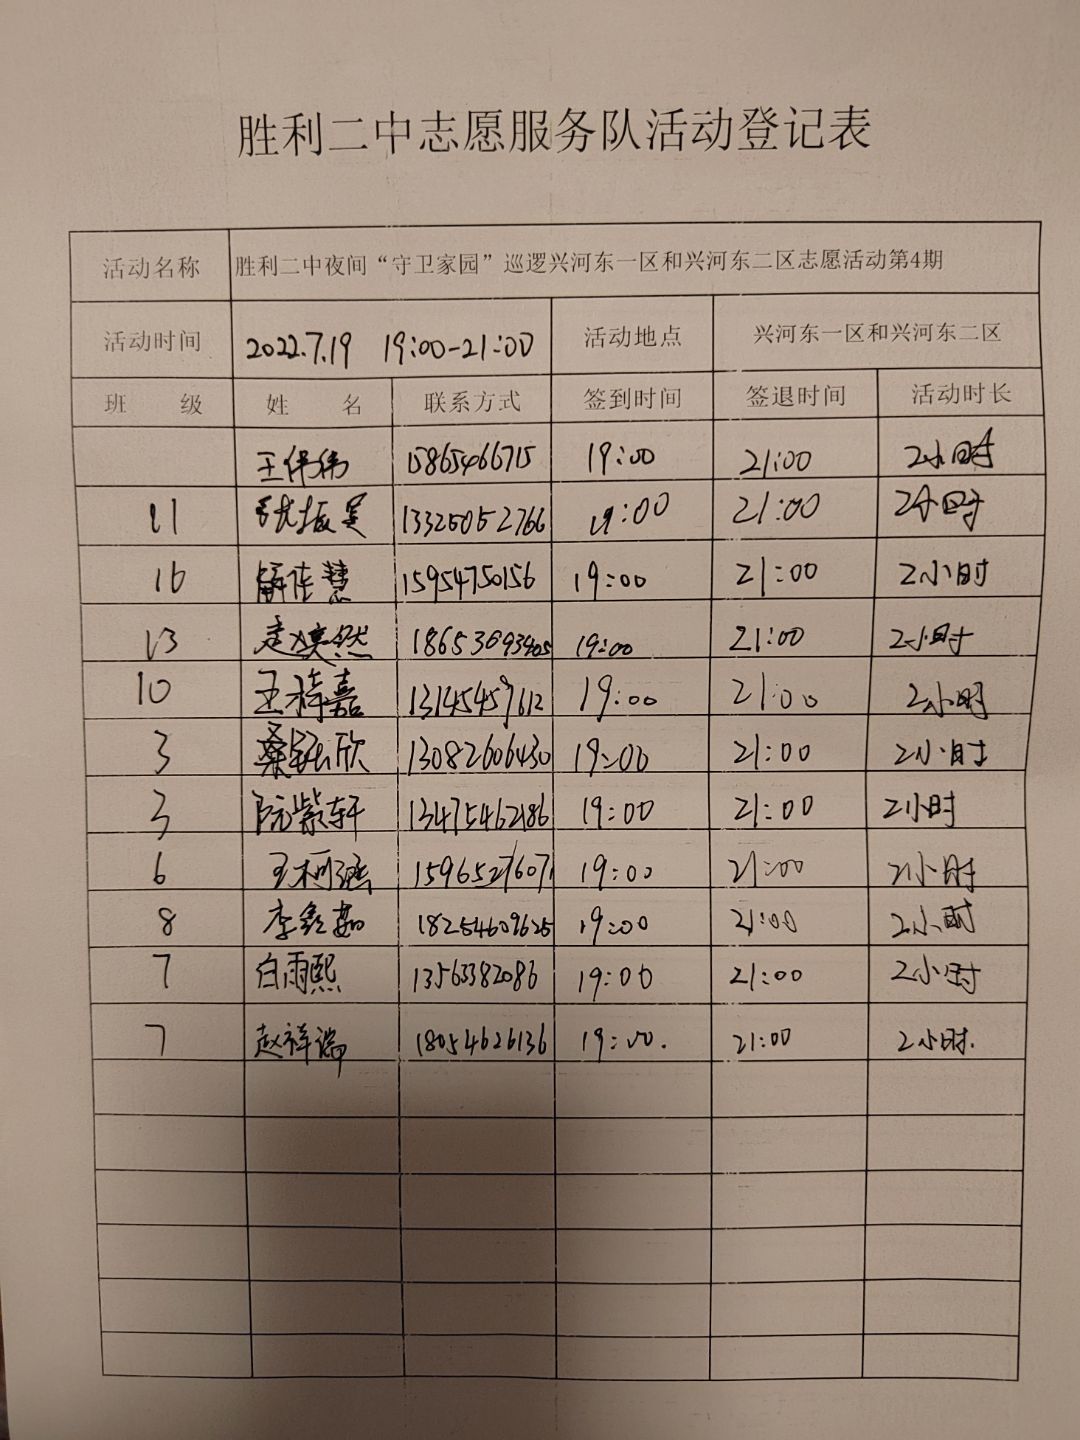 胜利二中志愿服务队活动登记表
活动名称 胜利二中夜间“守卫家园”巡逻兴河东一区和兴河东二区志愿活动第4期
活动时间 2022.7.19 19:00-21:00 活动地点 兴河东一区和兴河东二区
班 级 姓 名 联系方式 签到时间 签退时间 活动时长
王伟伟 15865466715 19:00 21:00 2小时
11 张振昊 13325052766 19:00 21:00 2小时
16 解佳慧 15954750156 19:00 21:00 2小时
13 19:00 21:00 2小时
10 13145459612 19:00 21:00 2小时
3 13082606430 19:00 21:00 2小时
3 阮紫轩 13475462186 19:00 21:00 2小时
6 王柯涵 15965276071 19:00 21:00 2小时
8 李鑫茹 18254609625 19:00 21:00 2小时
7 白雨熙 13563382086 19:00 21:00 2小时
7 赵祥瑞 18054626136 19:00. 21:00 2小时.